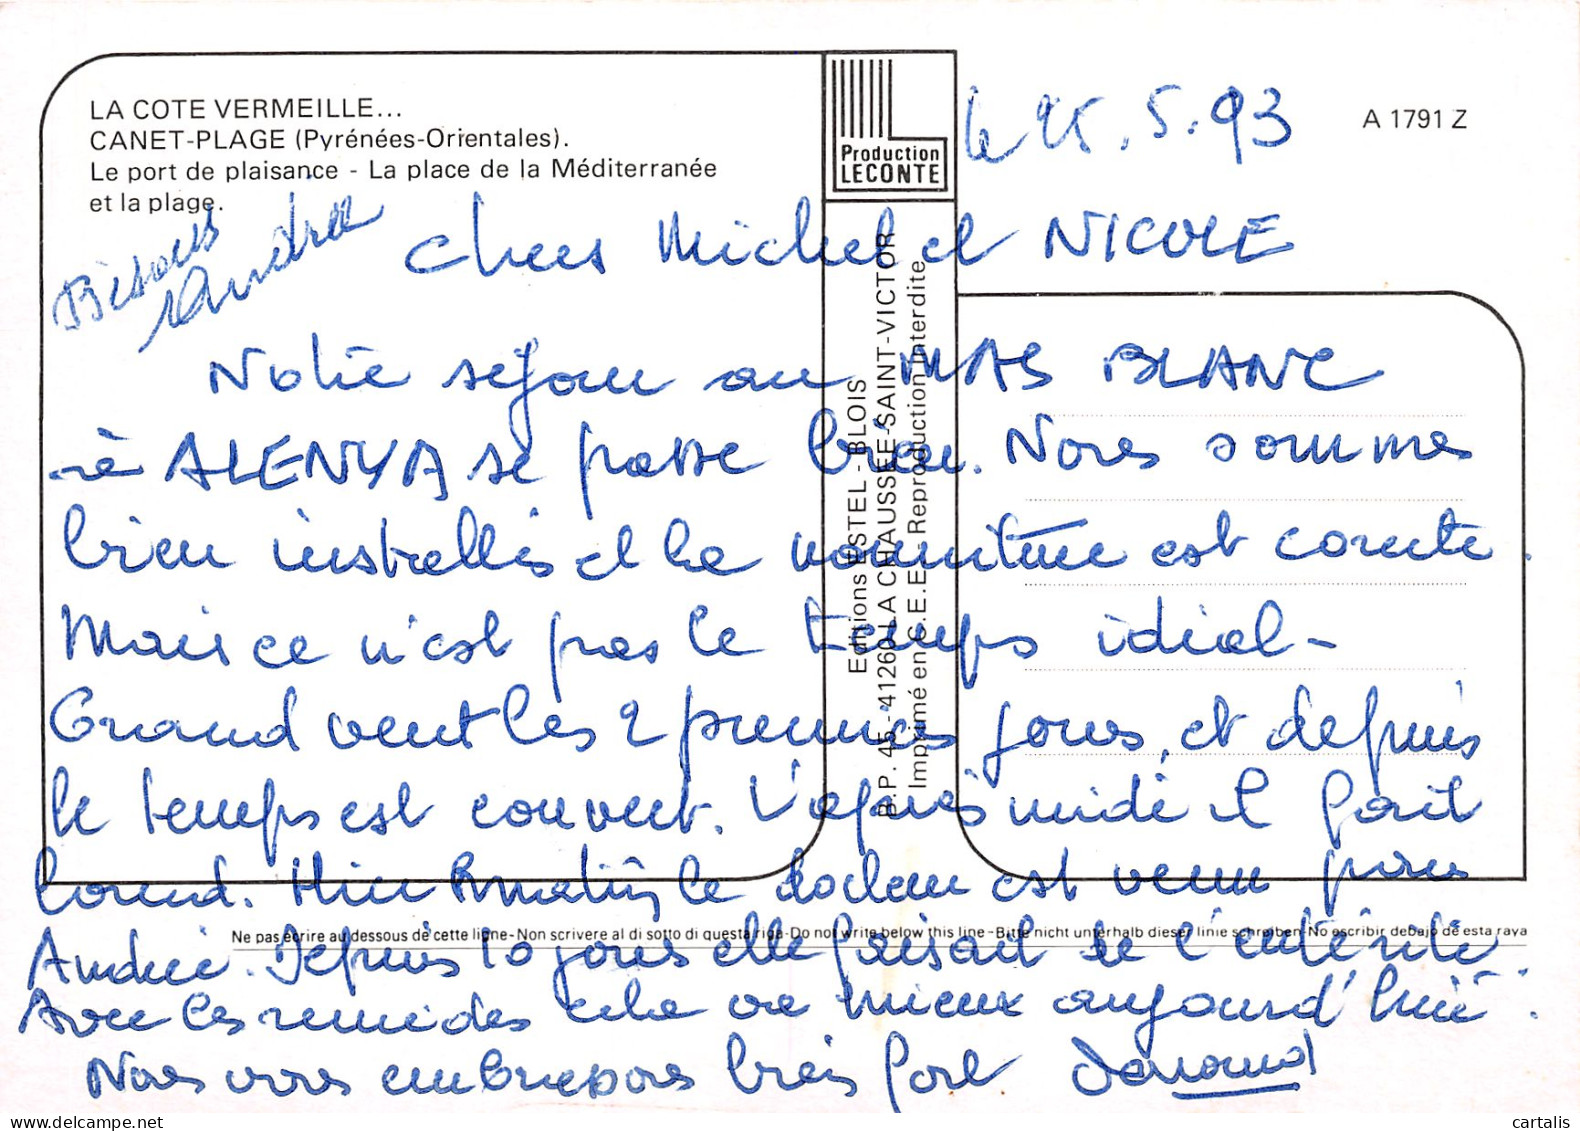 LA COTE VERMEILLE...
CANET-PLAGE (Pyrénées-Orientales).
Le port de plaisance - La place de la Méditerranée
et la plage.
Production
LECONTE
A 1791 Z
le 25.5.93
Bisous
Andrée
Chers Michel et NICOLE
Notre séjour au MAS BLANC
à ALENYA se passe bien. Nous sommes
bien installés et la nourriture est correcte.
Mais ce n'est pas le temps idéal-
Grand vent les 2 premiers jours, et depuis
le temps est couvert. L'après midi il fait
lourd. Hier matin le docteur est venu pour
Andrée. Depuis 10 jours elle faisait de l'entérite
Avec les remèdes cela va mieux aujourd'hui.
Nous vous embrassons bien fort
Editions ESTEL - BLOIS
B.P. 45 - 41260 LA CHAUSSÉE-SAINT-VICTOR
Imprimé en C.E.E. Reproduction interdite
Ne pas écrire au dessous de cette ligne-Non scrivere al di sotto di questa riga-Do not write below this line-Bitte nicht unterhalb dieser linie schreiben-No escribir debajo de esta raya
cartalis